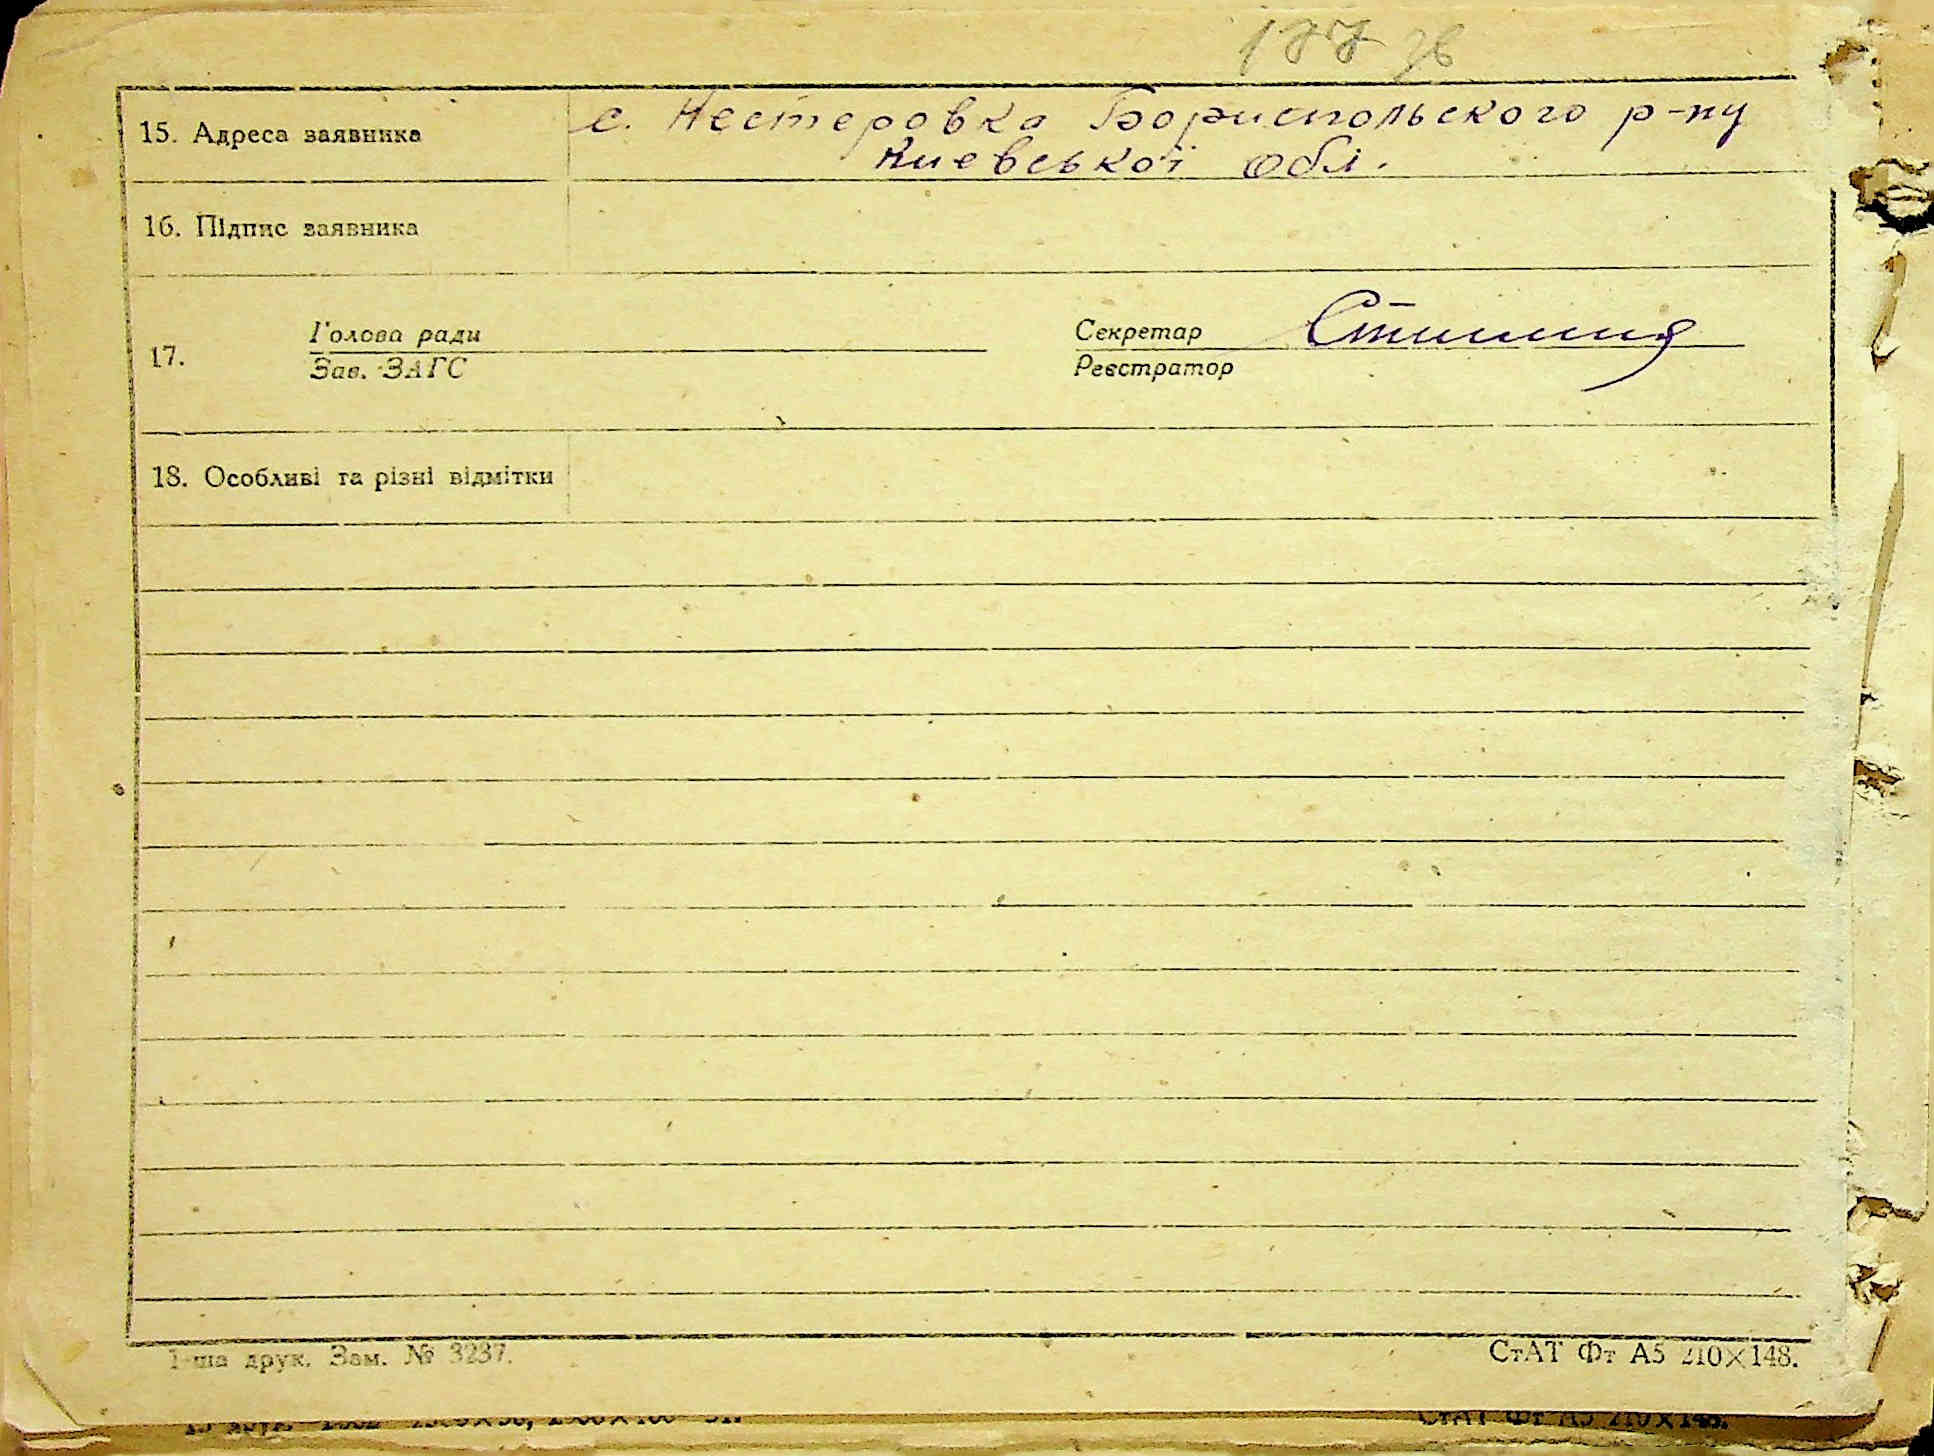 177 зв
15. Адреса заявника с. Нестеровка Бориспольского р-ну
Киевської обл.
16. Підпис заявника
17. Голова ради
Зав. ЗАГС
Секретар
Реєстратор
18. Особливі та різні відмітки
1-ша друк. Зам. № 3237.
СтАТ Фт А5 210×148.
СтАТ Фт А5 210×148.